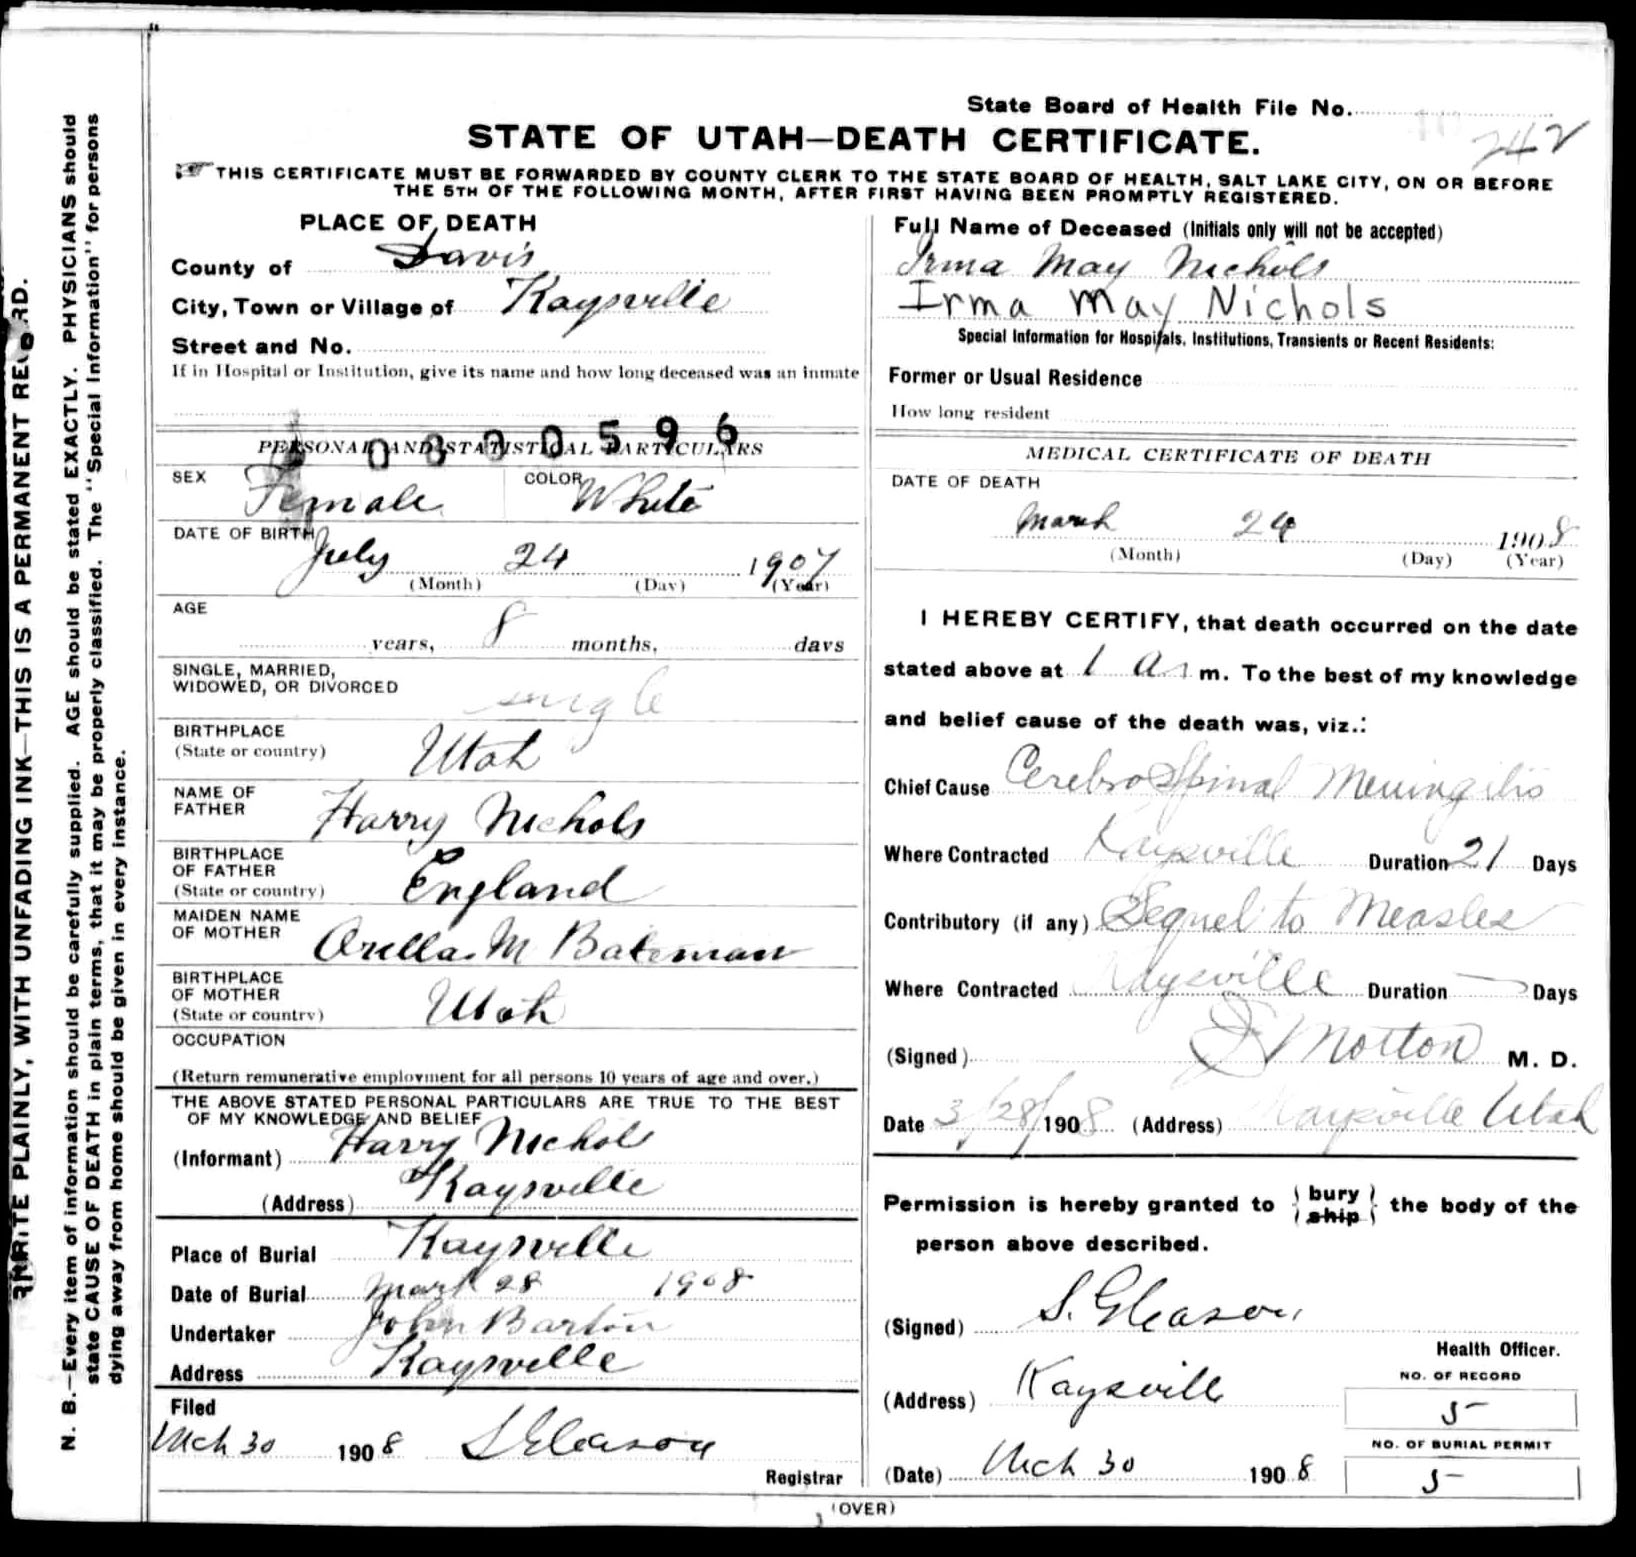 State Board of Health File No.
242
STATE OF UTAH—DEATH CERTIFICATE.
THIS CERTIFICATE MUST BE FORWARDED BY COUNTY CLERK TO THE STATE BOARD OF HEALTH, SALT LAKE CITY, ON OR BEFORE
THE 5TH OF THE FOLLOWING MONTH, AFTER FIRST HAVING BEEN PROMPTLY REGISTERED.
PLACE OF DEATH
County of Davis
City, Town or Village of Kaysville
Street and No.
If in Hospital or Institution, give its name and how long deceased was an inmate
0 0 0 0 5 9 6
PERSONAL AND STATISTICAL PARTICULARS
SEX Female COLOR White
DATE OF BIRTH July 24 1907
(Month) (Day) (Year)
AGE
years, 8 months, days
SINGLE, MARRIED,
WIDOWED, OR DIVORCED single
BIRTHPLACE
(State or country) Utah
NAME OF
FATHER Harry Nichols
BIRTHPLACE
OF FATHER
(State or country) England
MAIDEN NAME
OF MOTHER Orilla M Bateman
BIRTHPLACE
OF MOTHER
(State or country) Utah
OCCUPATION
(Return remunerative employment for all persons 10 years of age and over.)
THE ABOVE STATED PERSONAL PARTICULARS ARE TRUE TO THE BEST
OF MY KNOWLEDGE AND BELIEF
(Informant) Harry Nichols
(Address) Kaysville
Place of Burial Kaysville
Date of Burial March 28 1908
Undertaker John Barton
Address Kaysville
Filed
Mch 30 1908 S Gleason
Registrar
Full Name of Deceased (Initials only will not be accepted)
Irma May Nichols
Irma May Nichols
Special Information for Hospitals, Institutions, Transients or Recent Residents:
Former or Usual Residence
How long resident
MEDICAL CERTIFICATE OF DEATH
DATE OF DEATH
March 24 1908
(Month) (Day) (Year)
I HEREBY CERTIFY, that death occurred on the date
stated above at 1 a. m. To the best of my knowledge
and belief cause of the death was, viz.:
Chief Cause Cerebro Spinal Meningitis
Where Contracted Kaysville Duration 21 Days
Contributory (if any) Sequel to Measles
Where Contracted Kaysville Duration — Days
(Signed) Morton M. D.
Date 3/28/1908 (Address) Kaysville Utah
Permission is hereby granted to { bury ship } the body of the
person above described.
(Signed) S. Gleason,
Health Officer.
(Address) Kaysville
NO. OF RECORD
5
NO. OF BURIAL PERMIT
5
(Date) Mch 30 1908
(OVER)
WRITE PLAINLY, WITH UNFADING INK—THIS IS A PERMANENT RECORD.
N. B.—Every item of information should be carefully supplied. AGE should be stated EXACTLY. PHYSICIANS should
state CAUSE OF DEATH in plain terms, that it may be properly classified. The "Special Information" for persons
dying away from home should be given in every instance.